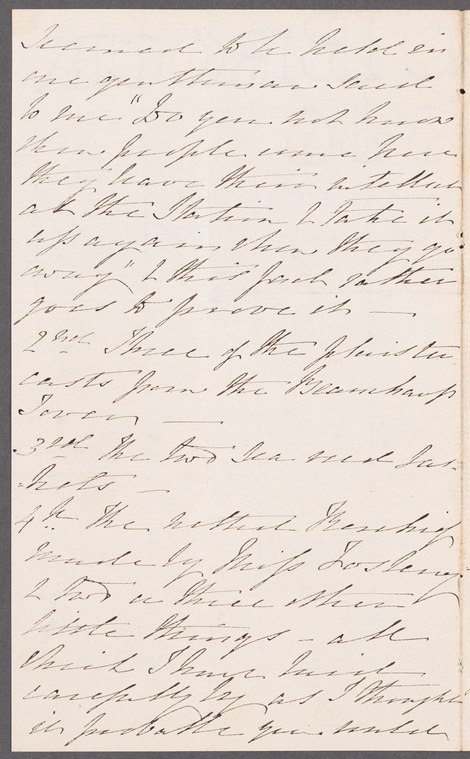 seemed to be held in
one gentleman said
to me "Do you not know
when people come here
they leave their intellect
at the Station & take it
up again when they go
away" & this fact rather
goes to prove it —
2nd Three of the plaister
casts from the Beauchamp
Tower —
3rd The two sea weed bas-
-kets —
4th The netted Kerchief
made by Miss
& two or three other
little things – all
which I have laid
carefully by as I thought
it probable you would